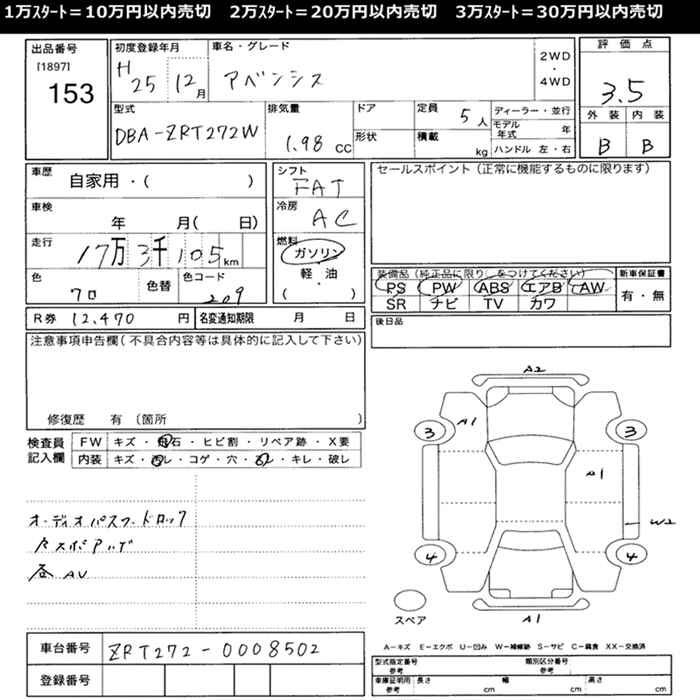 1万ｽﾀｰﾄ＝10万円以内売切　2万ｽﾀｰﾄ＝20万円以内売切　3万ｽﾀｰﾄ＝30万円以内売切
出品番号
[1897]
153
初度登録年月
H25 12月
車名・グレード
アベンシス
2WD
・
4WD
評価点
3.5
外装 内装
B B
型式
DBA-ZRT272W
排気量
1.98 CC
ドア
形状
定員
5人
積載
kg
ディーラー・並行
モデル年式 年
ハンドル 左・右
車歴
自家用・( )
車検
年 月( 日)
走行
17万3千105km
色
クロ
色替
色コード
209
シフト
FAT
冷房
AC
燃料
ガソリン
・
軽油
( )
セールスポイント(正常に機能するものに限ります)
装備品(純正品に限り○をつけてください)
PS PW ABS エアB AW
SR ナビ TV カワ
新車保証書
有・無
R券 12,470 円
名変通知期限 月 日
後日品
注意事項申告欄(不具合内容等は具体的に記入して下さい)
修復歴 有 〔箇所 〕
検査員
記入欄
FW キズ・飛石・ヒビ割・リペア跡・X要
内装 キズ・・コゲ・穴・・キレ・破レ
オーディオパスワードロック
AV
A2
A1
3
3
A1
W2
4
4
A1
スペア
A－キズ E－エクボ U－凹み W－補修跡 S－サビ C－腐食 XX－交換済
車台番号 ZRT272-0008502
登録番号
型式指定番号
参考
類別区分番号
参考
車庫証明用
参考
長さ cm
幅 cm
高さ cm